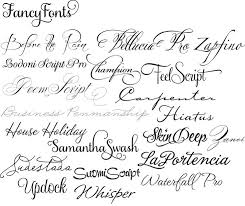 FancyFonts
Before the Rain Bellucia Pro Zapfino
Bodoni Script Pro Champion FeelScript
Poem Script Carpenter
Business Penmanship Hiatus
House Holiday SkinDeep Janet
SamanthaSwash LaPortencia
SudestadaSudestada
Updock SuomiScript Waterfall Pro
Whisper